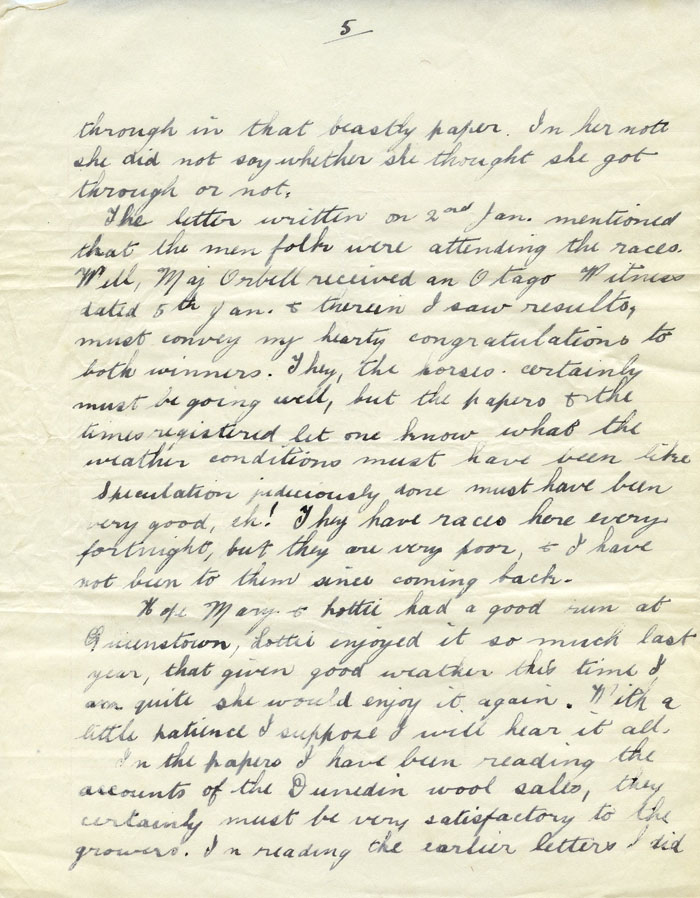 5
through in that beastly paper. In her note
she did not say whether she thought she got
through or not.
The letter written on 2nd Jan. mentioned
that the men folk were attending the races.
Well, Maj Orbell received an Otago Witness
dated 5th Jan. & therein I saw results,
must convey my hearty congratulations to
both winners. They, the horses. certainly
must be going well, but the papers & the
times registered let one know what the
weather conditions must have been like
Speculation judiciously done must have been
very good, eh! They have races here every
fortnight, but they are very poor, & I have
not been to them since coming back.
Hope Mary & Lottie had a good run at
Queenstown, Lottie enjoyed it so much last
year, that given good weather this time I
am quite she would enjoy it again. With a
little patience I suppose I will hear it all.
In the papers I have been reading the
accounts of the Dunedin wool sales, they
certainly must be very satisfactory to the
growers. In reading the earlier letters I did